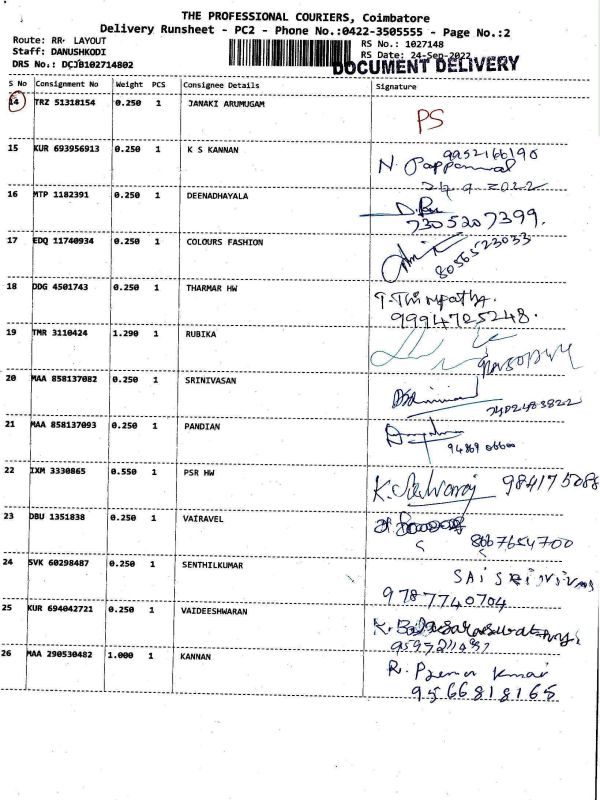 THE PROFESSIONAL COURIERS, Coimbatore
Delivery Runsheet - PC2 - Phone No.:0422-3505555 - Page No.:2
Route: RR- LAYOUT
Staff: DANUSHKODI
DRS No.: DCJB102714802
RS No.: 1027148
RS Date: 24-Sep-2022
DOCUMENT DELIVERY
S No Consignment No Weight PCS Consignee Details Signature
14 TRZ 51318154 0.250 1 JANAKI ARUMUGAM PS
15 KUR 693956913 0.250 1 K S KANNAN 9952166190
N. Pappammal
24.9.2022
16 MTP 1182391 0.250 1 DEENADHAYALA
7305207399.
17 EDQ 11740934 0.250 1 COLOURS FASHION
8056523033
18 DDG 4501743 0.250 1 THARMAR HW
9994705248.
19 TMR 3110424 1.290 1 RUBIKA
20 MAA 858137082 0.250 1 SRINIVASAN
7402483822
21 MAA 858137093 0.250 1 PANDIAN
22 IXM 3330865 0.550 1 PSR HW K. Selvaraj
23 DBU 1351838 0.250 1 VAIRAVEL
8667654700
24 SVK 60298487 0.250 1 SENTHILKUMAR
9787740704
25 KUR 694042721 0.250 1 VAIDEESHWARAN
26 MAA 290530482 1.000 1 KANNAN R. Prem Kumar
9566818165